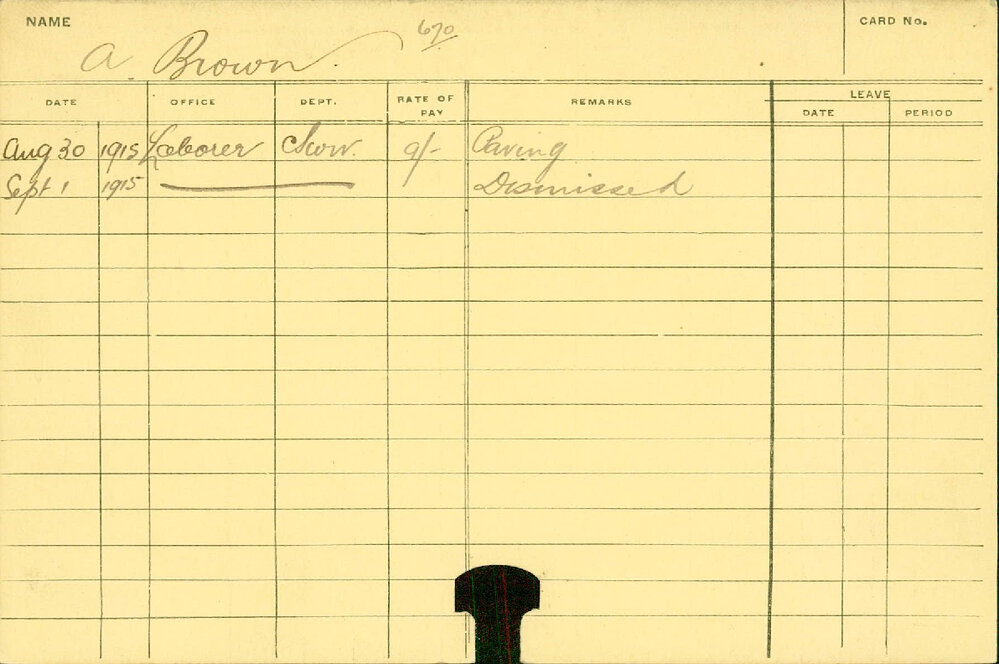 NAME
A. Brown.
670
CARD No.
DATE OFFICE DEPT. RATE OF PAY REMARKS LEAVE
DATE PERIOD
Aug 30 1915 Laborer 9/- Paving
Sept 1 1915 Dismissed